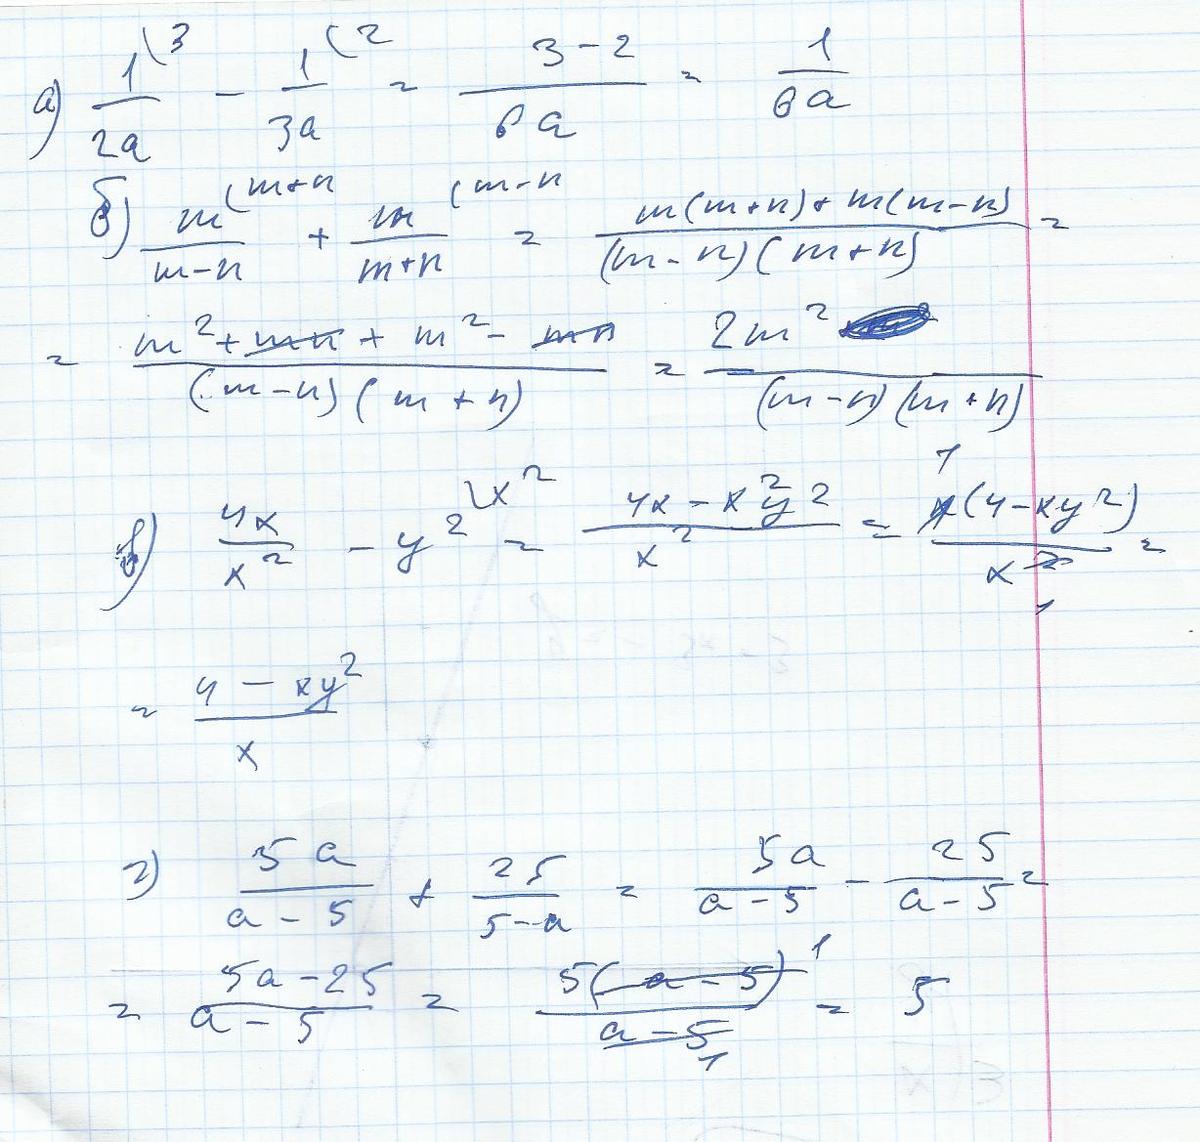 а) 1/2a (3 - 1/3a (2 = (3-2)/6a = 1/6a
б) m/(m-n) (m+n + m/(m+n) (m-n = (m(m+n)+m(m-n))/((m-n)(m+n)) =
= (m²+mn+m²-mn)/((m-n)(m+n)) = 2m²/((m-n)(m+n))
в) 4x/x² - y² (x² = (4x-x²y²)/x² = x(4-xy²)/x² = 1 1
= (4-xy²)/x
г) 5a/(a-5) + 25/(5-a) = 5a/(a-5) - 25/(a-5) =
= (5a-25)/(a-5) = 5(a-5)/(a-5) 1 1 = 5